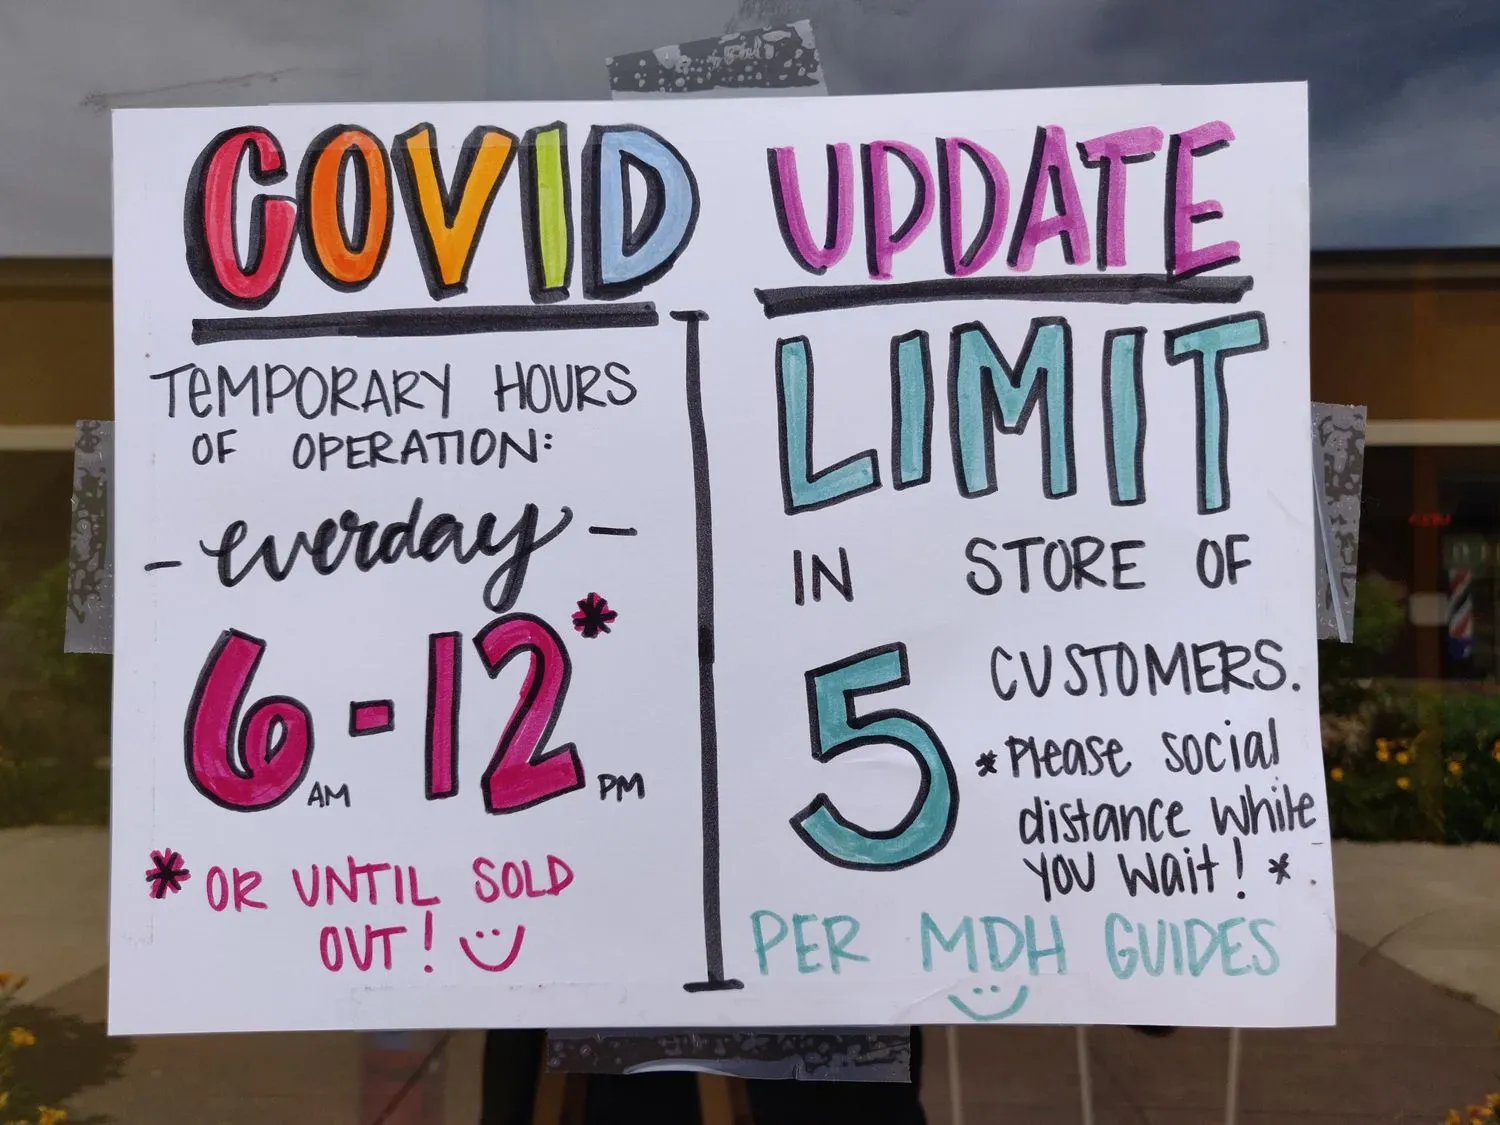 COVID UPDATE
TEMPORARY HOURS
OF OPERATION:
- everday -
6AM-12PM*
* OR UNTIL SOLD
OUT!
LIMIT
IN STORE OF
5 CUSTOMERS.
*Please social
distance while
you wait! *
PER MDH GUIDES